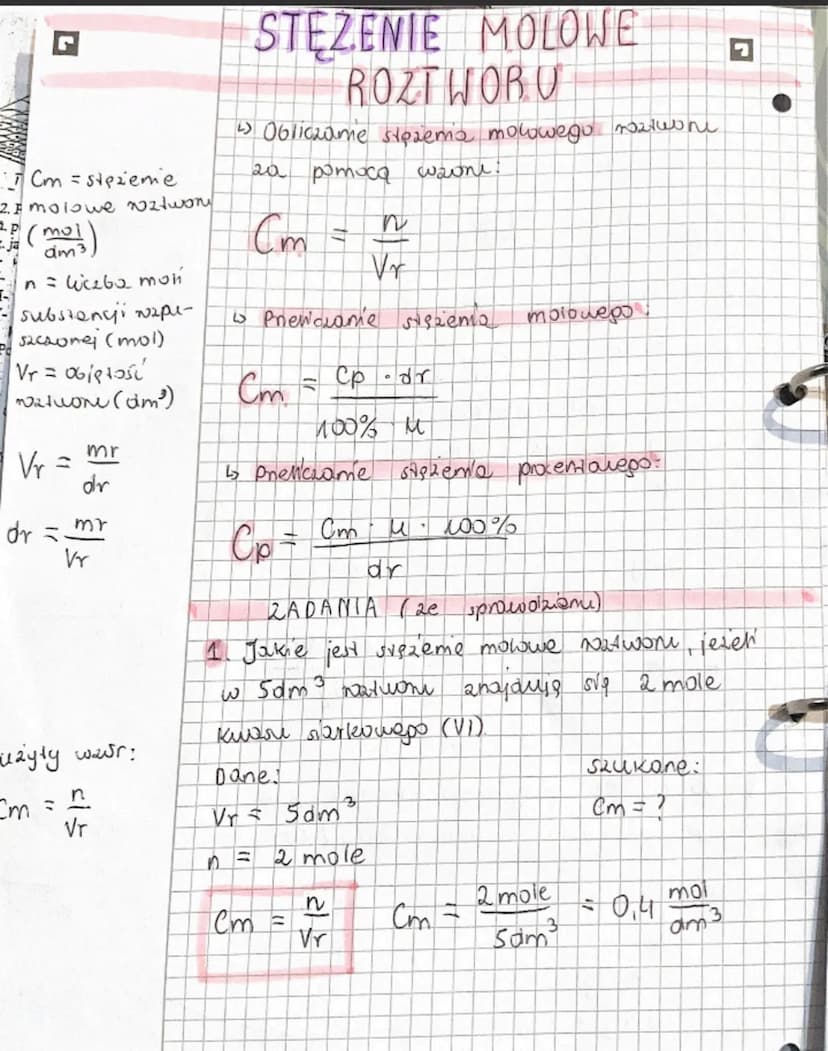 STĘŻENIE MOLOWE
ROZTWORU
↳ Obliczanie stężenia molowego roztworu
za pomocą wzoru:
Cm = n/Vr
↳ Przeliczanie stężenia molowego:
Cm = Cp · dr / 100% · M
↳ Przeliczanie stężenia procentowego:
Cp = Cm · M · 100% / dr
Cm = stężenie
molowe roztworu
(mol/dm³)
n = liczba moli
substancji rozpu-
szczonej (mol)
Vr = objętość
roztworu (dm³)
Vr = mr/dr
dr = mr/Vr
ZADANIA (ze sprawdzianu)
1. Jakie jest stężenie molowe roztworu, jeżeli
w 5dm³ roztworu znajdują się 2 mole
kwasu siarkowego (VI).
Dane:
Szukane:
Vr = 5dm³
Cm = ?
n = 2 mole
Cm = n/Vr
Cm = 2 mole/5dm³ = 0,4 mol/dm³
użyty wzór:
Cm = n/Vr